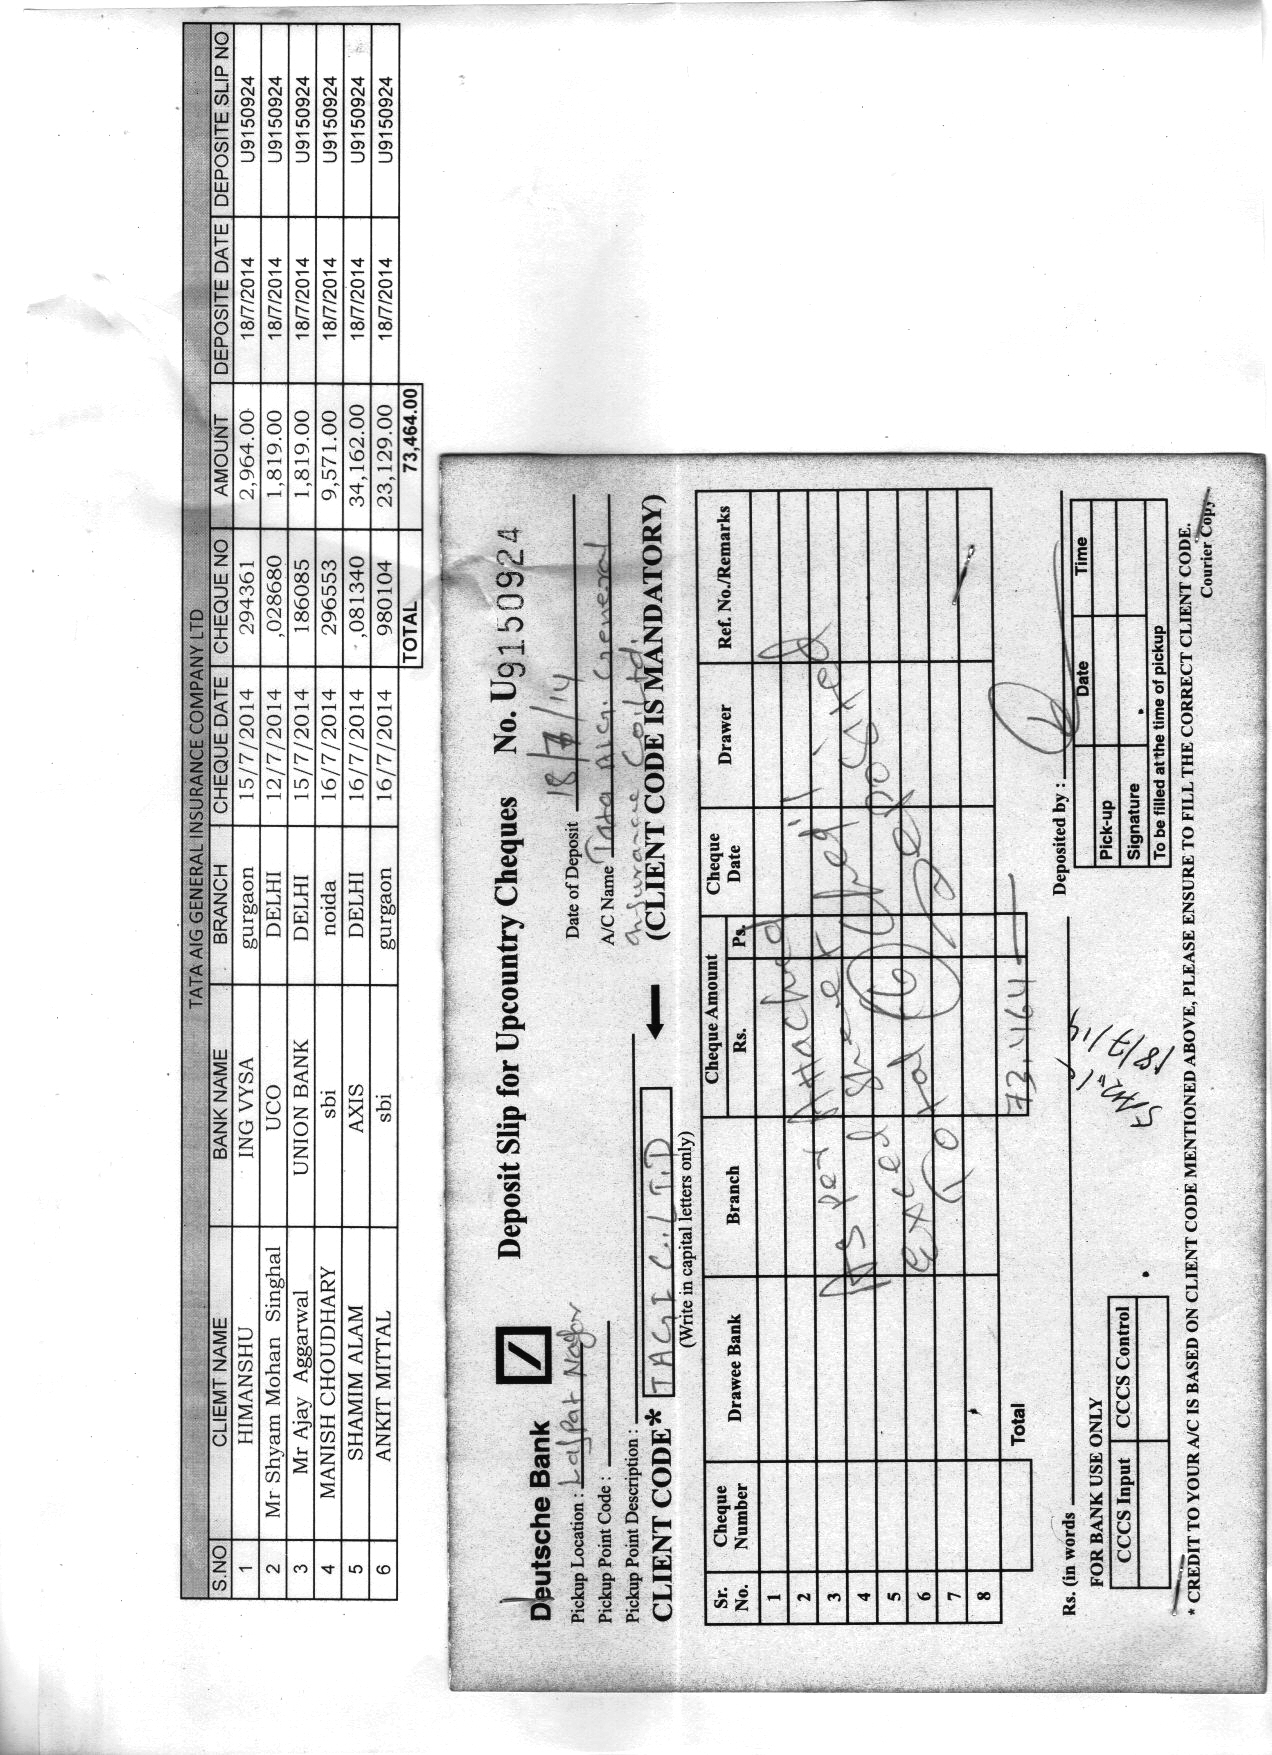 TATA AIG GENERAL INSURANCE COMPANY LTD
S.NO CLIEMT NAME BANK NAME BRANCH CHEQUE DATE CHEQUE NO AMOUNT DEPOSITE DATE DEPOSITE SLIP NO
1 HIMANSHU ING VYSA gurgaon 15/7/2014 294361 2,964.00 18/7/2014 U9150924
2 Mr Shyam Mohan Singhal UCO DELHI 12/7/2014 ,028680 1,819.00 18/7/2014 U9150924
3 Mr Ajay Aggarwal UNION BANK DELHI 15/7/2014 186085 1,819.00 18/7/2014 U9150924
4 MANISH CHOUDHARY sbi noida 16/7/2014 296553 9,571.00 18/7/2014 U9150924
5 SHAMIM ALAM AXIS DELHI 16/7/2014 ,081340 34,162.00 18/7/2014 U9150924
6 ANKIT MITTAL sbi gurgaon 16/7/2014 980104 23,129.00 18/7/2014 U9150924
TOTAL 73,464.00
Deutsche Bank Deposit Slip for Upcountry Cheques No. U9150924
Pickup Location : Lajpat Nagar Date of Deposit 18/7/14
Pickup Point Code : A/C Name Tata AIG. General
Pickup Point Description : Insurance Co. Ltd.
CLIENT CODE* TAGI C. LTD (CLIENT CODE IS MANDATORY)
(Write in capital letters only)
Sr. No. Cheque Number Drawee Bank Branch Cheque Amount Rs. Ps. Cheque Date Drawer Ref. No./Remarks
1
2 Attached
3 As per
4 Sheet
5 Excel
6 Total 6
7
8
Total 73,464
Rs. (in words Deposited by :
18/7/14
FOR BANK USE ONLY
CCCS Input CCCS Control
Date Time
Pick-up
Signature
To be filled at the time of pickup
* CREDIT TO YOUR A/C IS BASED ON CLIENT CODE MENTIONED ABOVE, PLEASE ENSURE TO FILL THE CORRECT CLIENT CODE.
Courier Copy